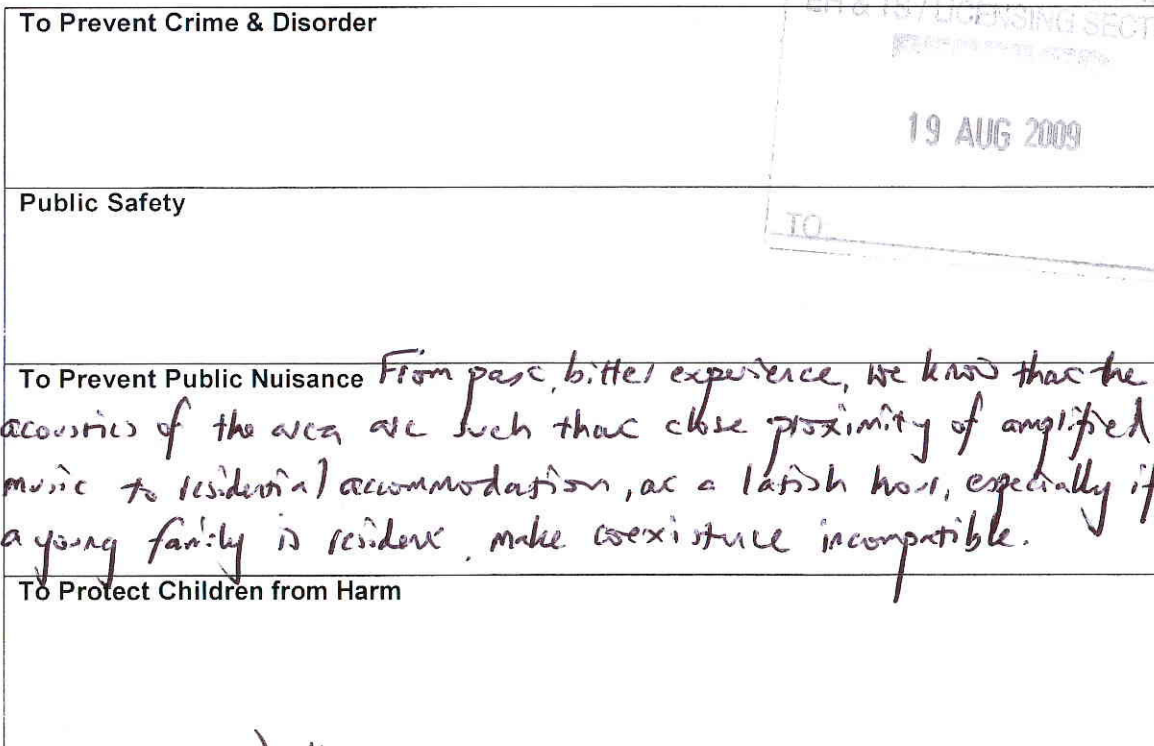 To Prevent Crime & Disorder
EH & TS / LICENSING SECT
19 AUG 2009
Public Safety
TO
To Prevent Public Nuisance From past, bitter experience, we know that the
acoustics of the area are such that close proximity of amplified
music to residential accommodation, at a latish hour, especially if
a young family is resident, make coexistence incompatible.
To Protect Children from Harm